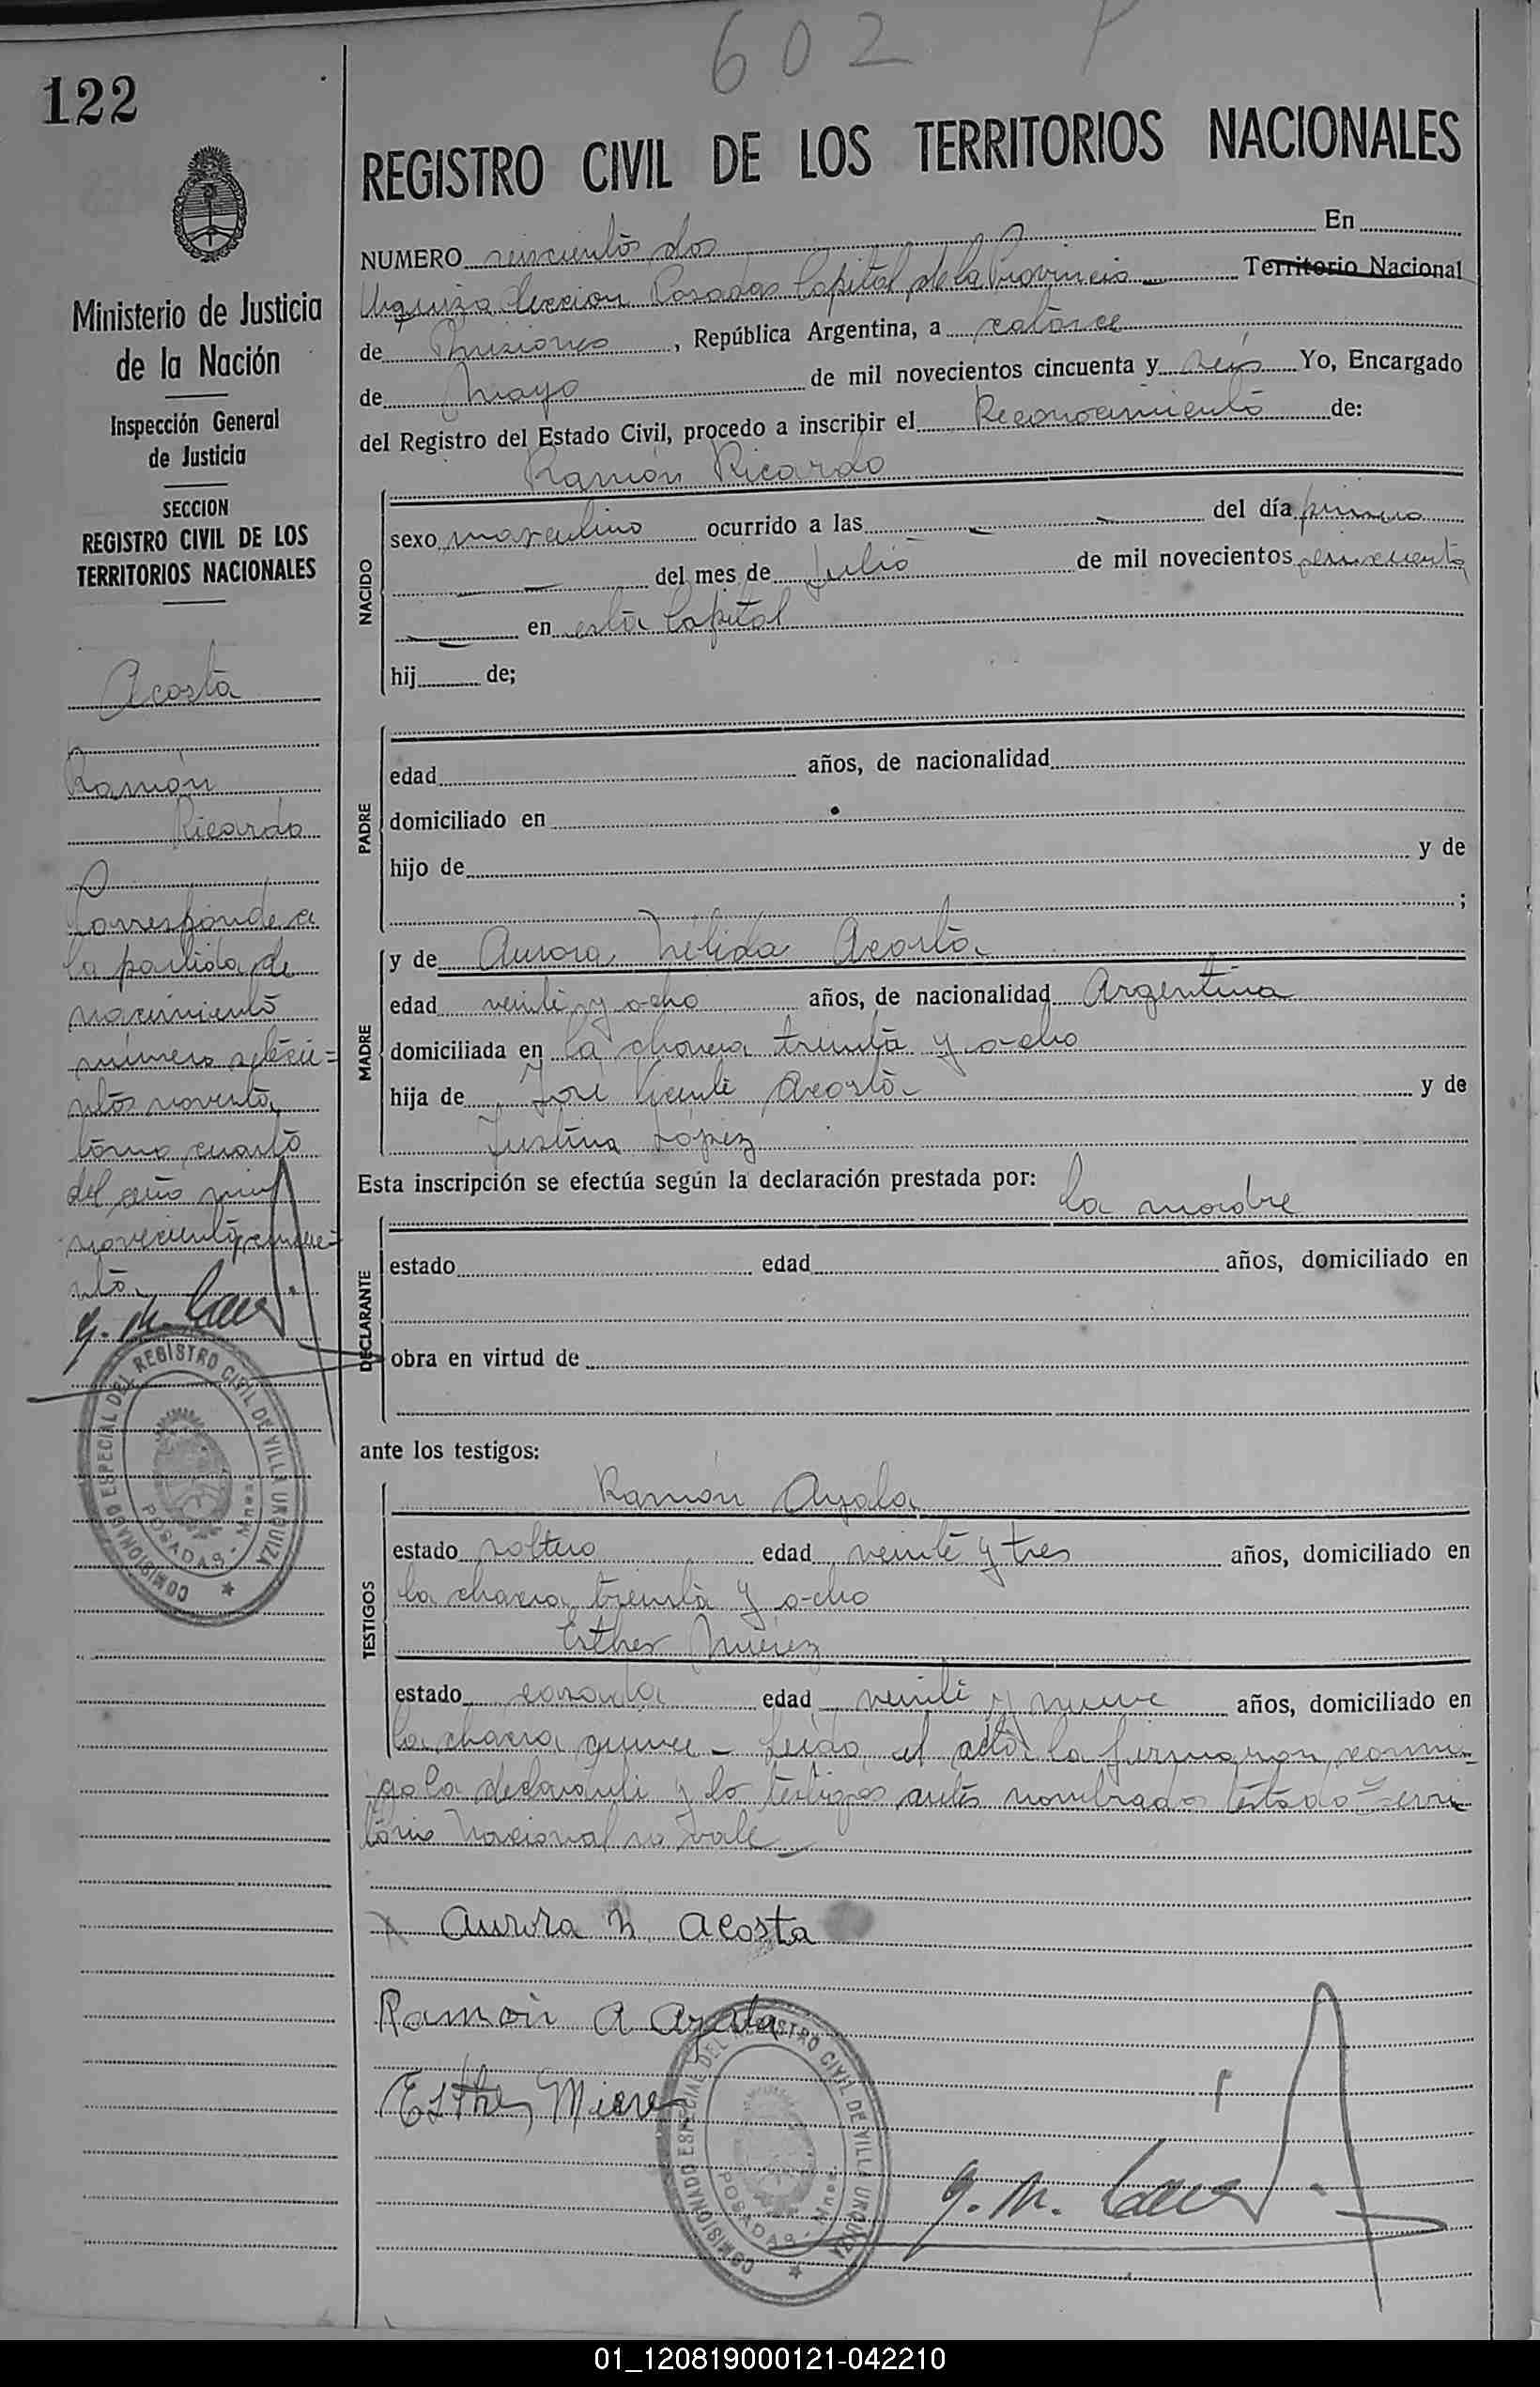 602
122
REGISTRO CIVIL DE LOS TERRITORIOS NACIONALES
Ministerio de Justicia
de la Nación
Inspección General
de Justicia
SECCION
REGISTRO CIVIL DE LOS
TERRITORIOS NACIONALES
Acosta
Ramón
Ricardo
Corresponde a
la partida de
nacimiento
número setecie=
ntos noventa
tomo cuarto
del año mil
novecientos cincue=
nta
COMISIONADO ESPECIAL DEL REGISTRO CIVIL DE VILLA URQUIZA
POSADAS - Mnes.
NUMERO seiscientos dos En
Urquiza Seccion Posadas Capital de la Provincia Territorio Nacional
de Misiones, República Argentina, a catorce
de Mayo de mil novecientos cincuenta y seis Yo, Encargado
del Registro del Estado Civil, procedo a inscribir el Reconocimiento de:
Ramón Ricardo
NACIDO
sexo masculino ocurrido a las del día primero
del mes de Julio de mil novecientos cincuenta
en esta Capital
hij de;
PADRE
edad años, de nacionalidad
domiciliado en
hijo de y de
;
MADRE
y de Aurora Nélida Acosta
edad veinte y ocho años, de nacionalidad Argentina
domiciliada en la chacra treinta y ocho
hija de José Vicente Acosta y de
Justina Lopez
Esta inscripción se efectúa según la declaración prestada por:
la madre
DECLARANTE
estado edad años, domiciliado en
obra en virtud de
ante los testigos:
TESTIGOS
Ramón Ayala
estado soltero edad veinte y tres años, domiciliado en
la chacra treinta y ocho
Esther
estado casada edad veinte y nueve años, domiciliado en
la chacra quince - Leída el acta la firmaron conmi-
go la declarante y lo testigos antes nombrados testado=Terri
torio Nacional no vale
Aurora N. Acosta
Ramón A Ayala
Esther
COMISIONADO ESPECIAL DEL REGISTRO CIVIL DE VILLA URQUIZA
POSADAS - Mnes.
01_120819000121-042210